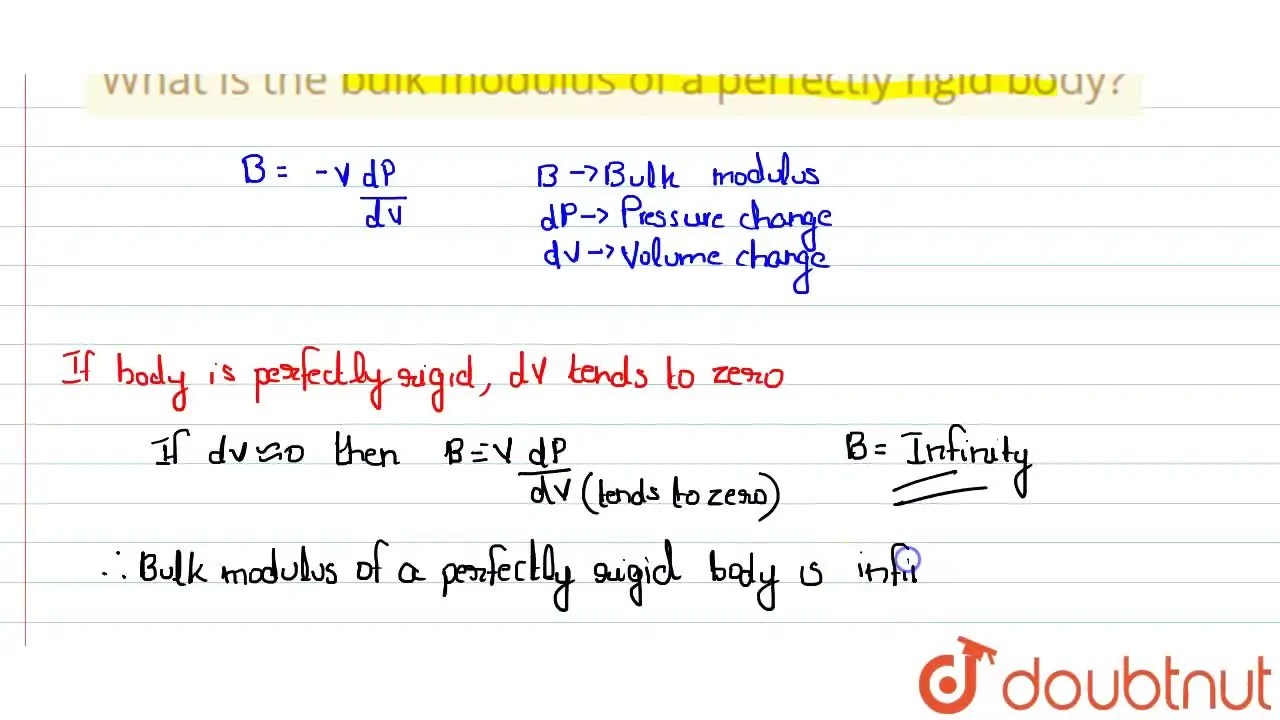 What is the bulk modulus of a perfectly rigid body?
B = -V dP
dV
B → Bulk modulus
dP → Pressure change
dV → Volume change
If body is perfectly rigid, dV tends to zero
If dV ≈ 0 then B = -V dP
dV (tends to zero)
B = Infinity
∴ Bulk modulus of a perfectly rigid body is infi
doubtnut